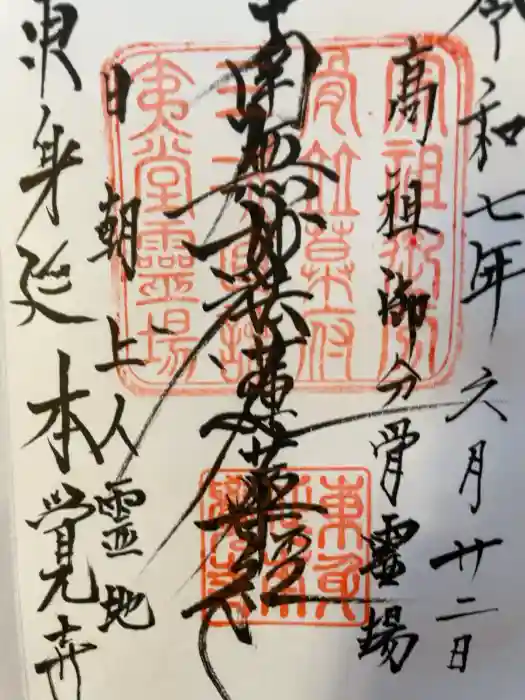 令和七年六月廿二日
高祖御分骨霊場
南無妙法蓮華経
日朝上人霊地
東身延本覚寺
夷堂霊場